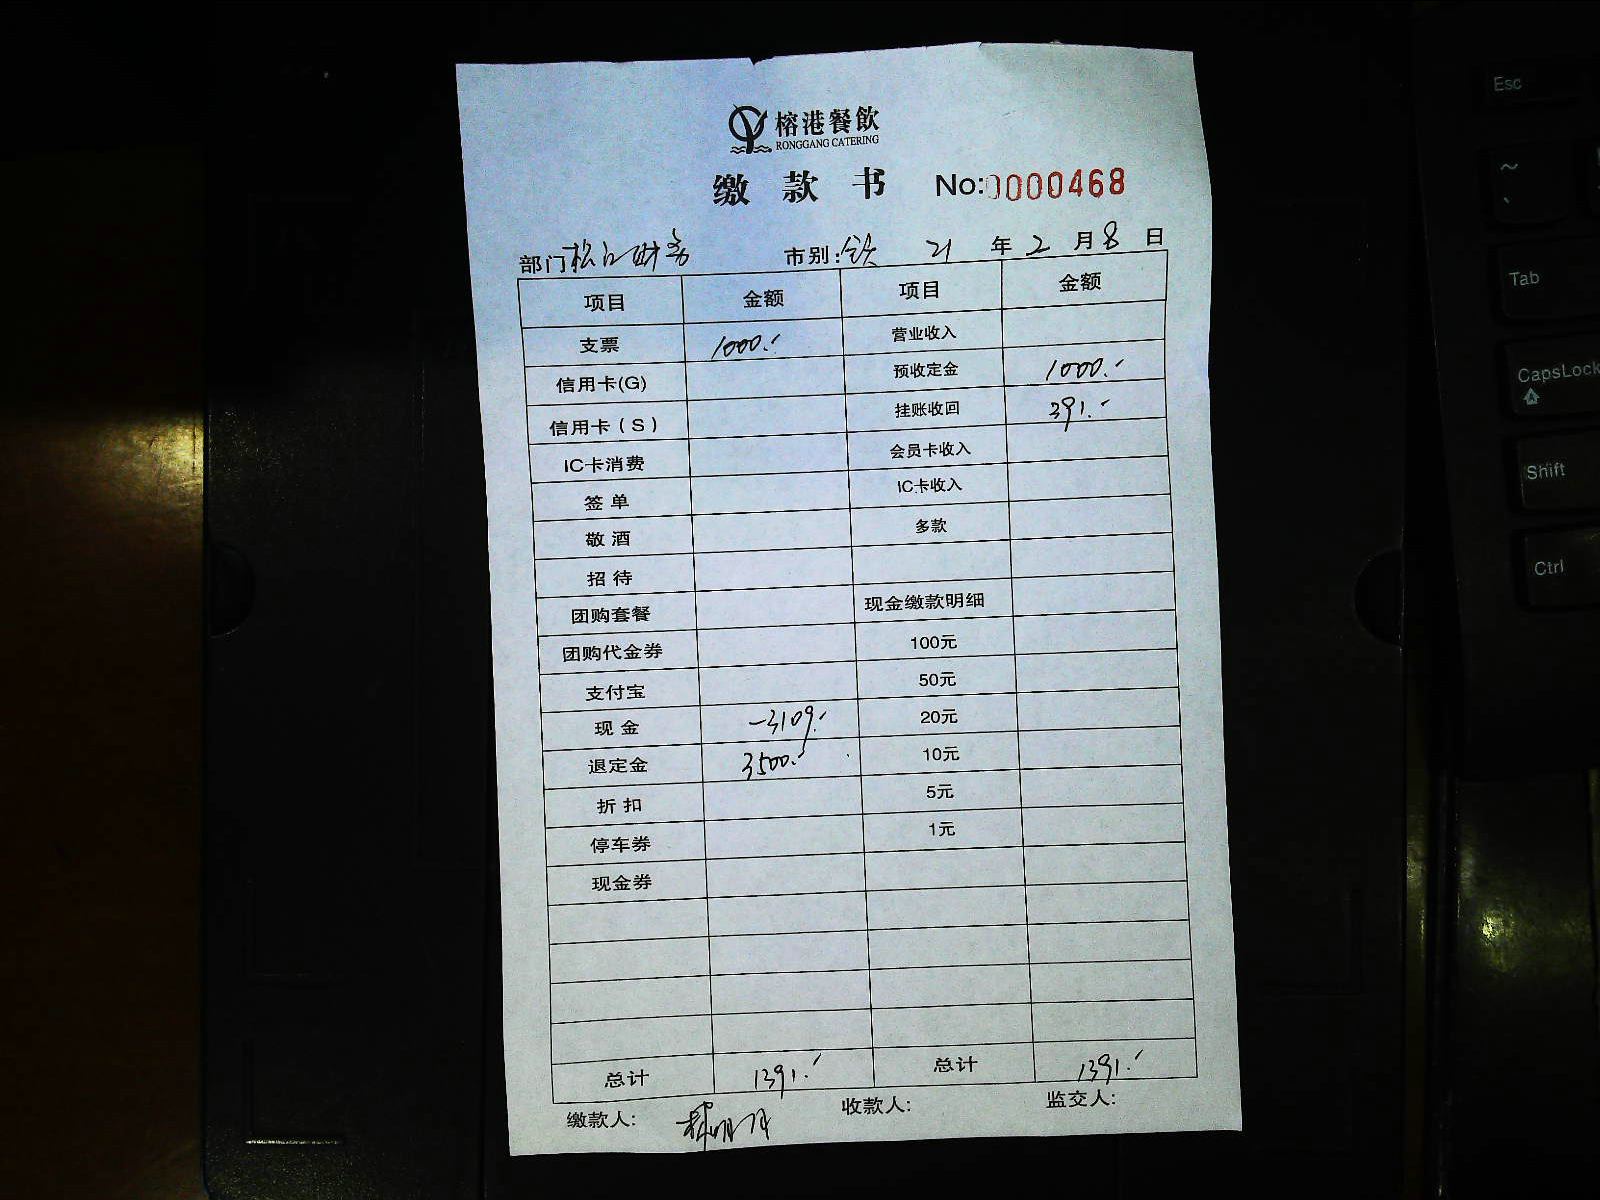 榕港餐飲
RONGGANG CATERING
缴款书 No:0000468
部门 松江财务 市别: 21 年 2 月 8 日
项目 金额 项目 金额
支票 1000.- 营业收入
信用卡(G) 预收定金 1000.-
信用卡(S) 挂账收回 391.-
IC卡消费 会员卡收入
签单 IC卡收入
敬酒 多款
招待
团购套餐 现金缴款明细
团购代金券 100元
支付宝 50元
现金 -3109.- 20元
退定金 3500.- 10元
折扣 5元
停车券 1元
现金券
总计 1391.- 总计 1391.-
缴款人: 收款人: 监交人:
Esc
~
、
Tab
CapsLock
Shift
Ctrl